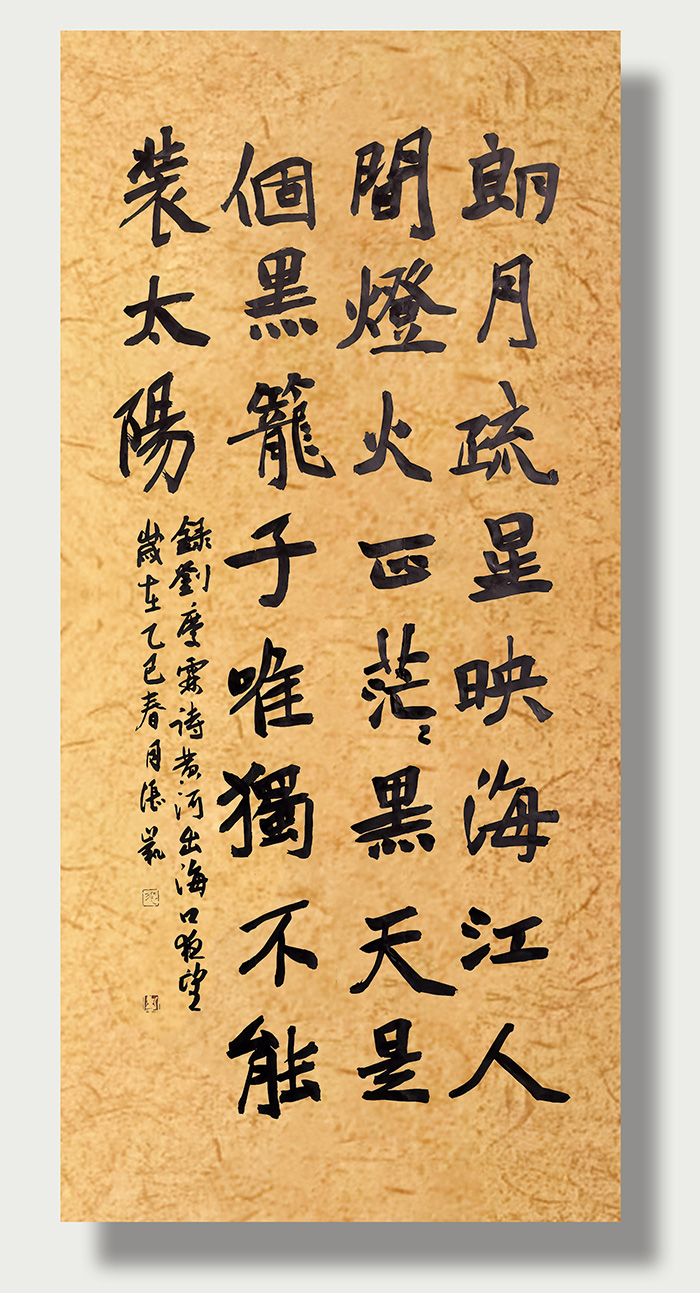 朗月疏星映海江人
間燈火正茫〻黑天是
個黑籠子唯獨不能
裝太陽
録劉慶霖詩黄河出海口夜望
歲在乙巳春月